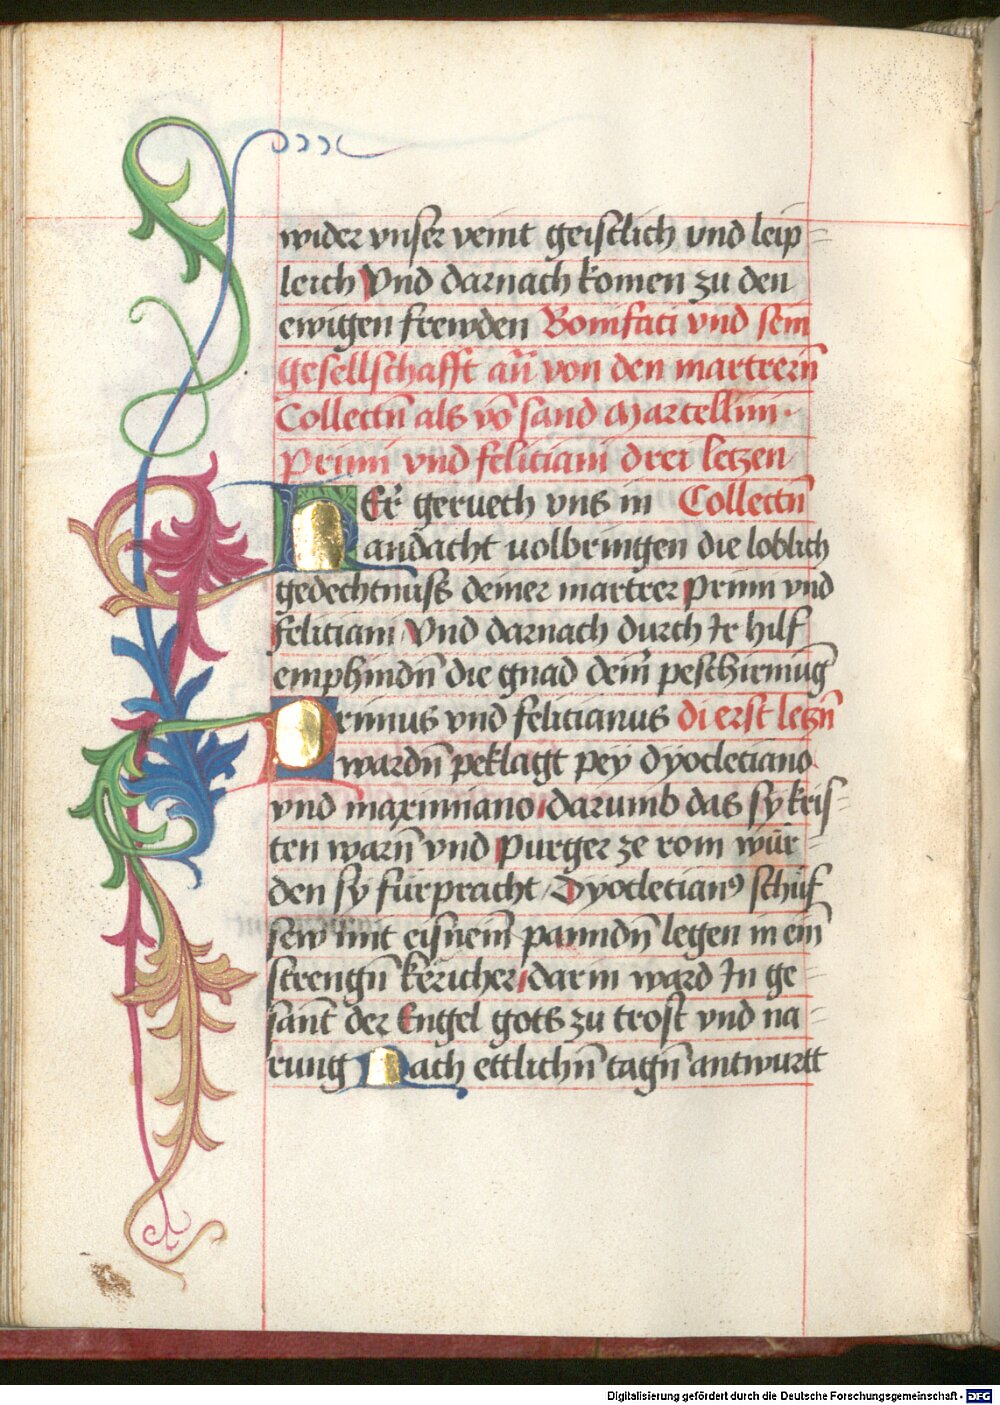 wider vnser veint geistlich vnd leip=
leich Vnd darnach komen zu den
ewigen frewden Bonifaci vnd sein
gesellschafft an̄ von den martrern̄
Collectn̄ als vō sand Marcellini·
Primi vnd feliciani drei letzen
HEr̄ geruech vns in Collectn̄
andacht uolbringen die loblich
gedechtnuss deiner martrer Primi vnd
feliciani Vnd darnach durch Ir hilf
emphindn̄ die gnad dein̄ peschirmūg
Primus vnd felicianus di erst letzn̄
wardn̄ peklagt pey dyocleciano
vnd maximiano darumb das sy kris=
ten warn̄ vnd purger ze rom wur=
den sy fürpracht Dyoclecianꝰ schuf
sew mit eisnein̄ panndn̄ legen in ein̄
strengn̄ kericher darin ward In ge=
sant der Engel gots zu trost vnd na=
rung Nach ettlichn̄ tagn̄ antwurtt
Digitalisierung gefördert durch die Deutsche Forschungsgemeinschaft - DFG